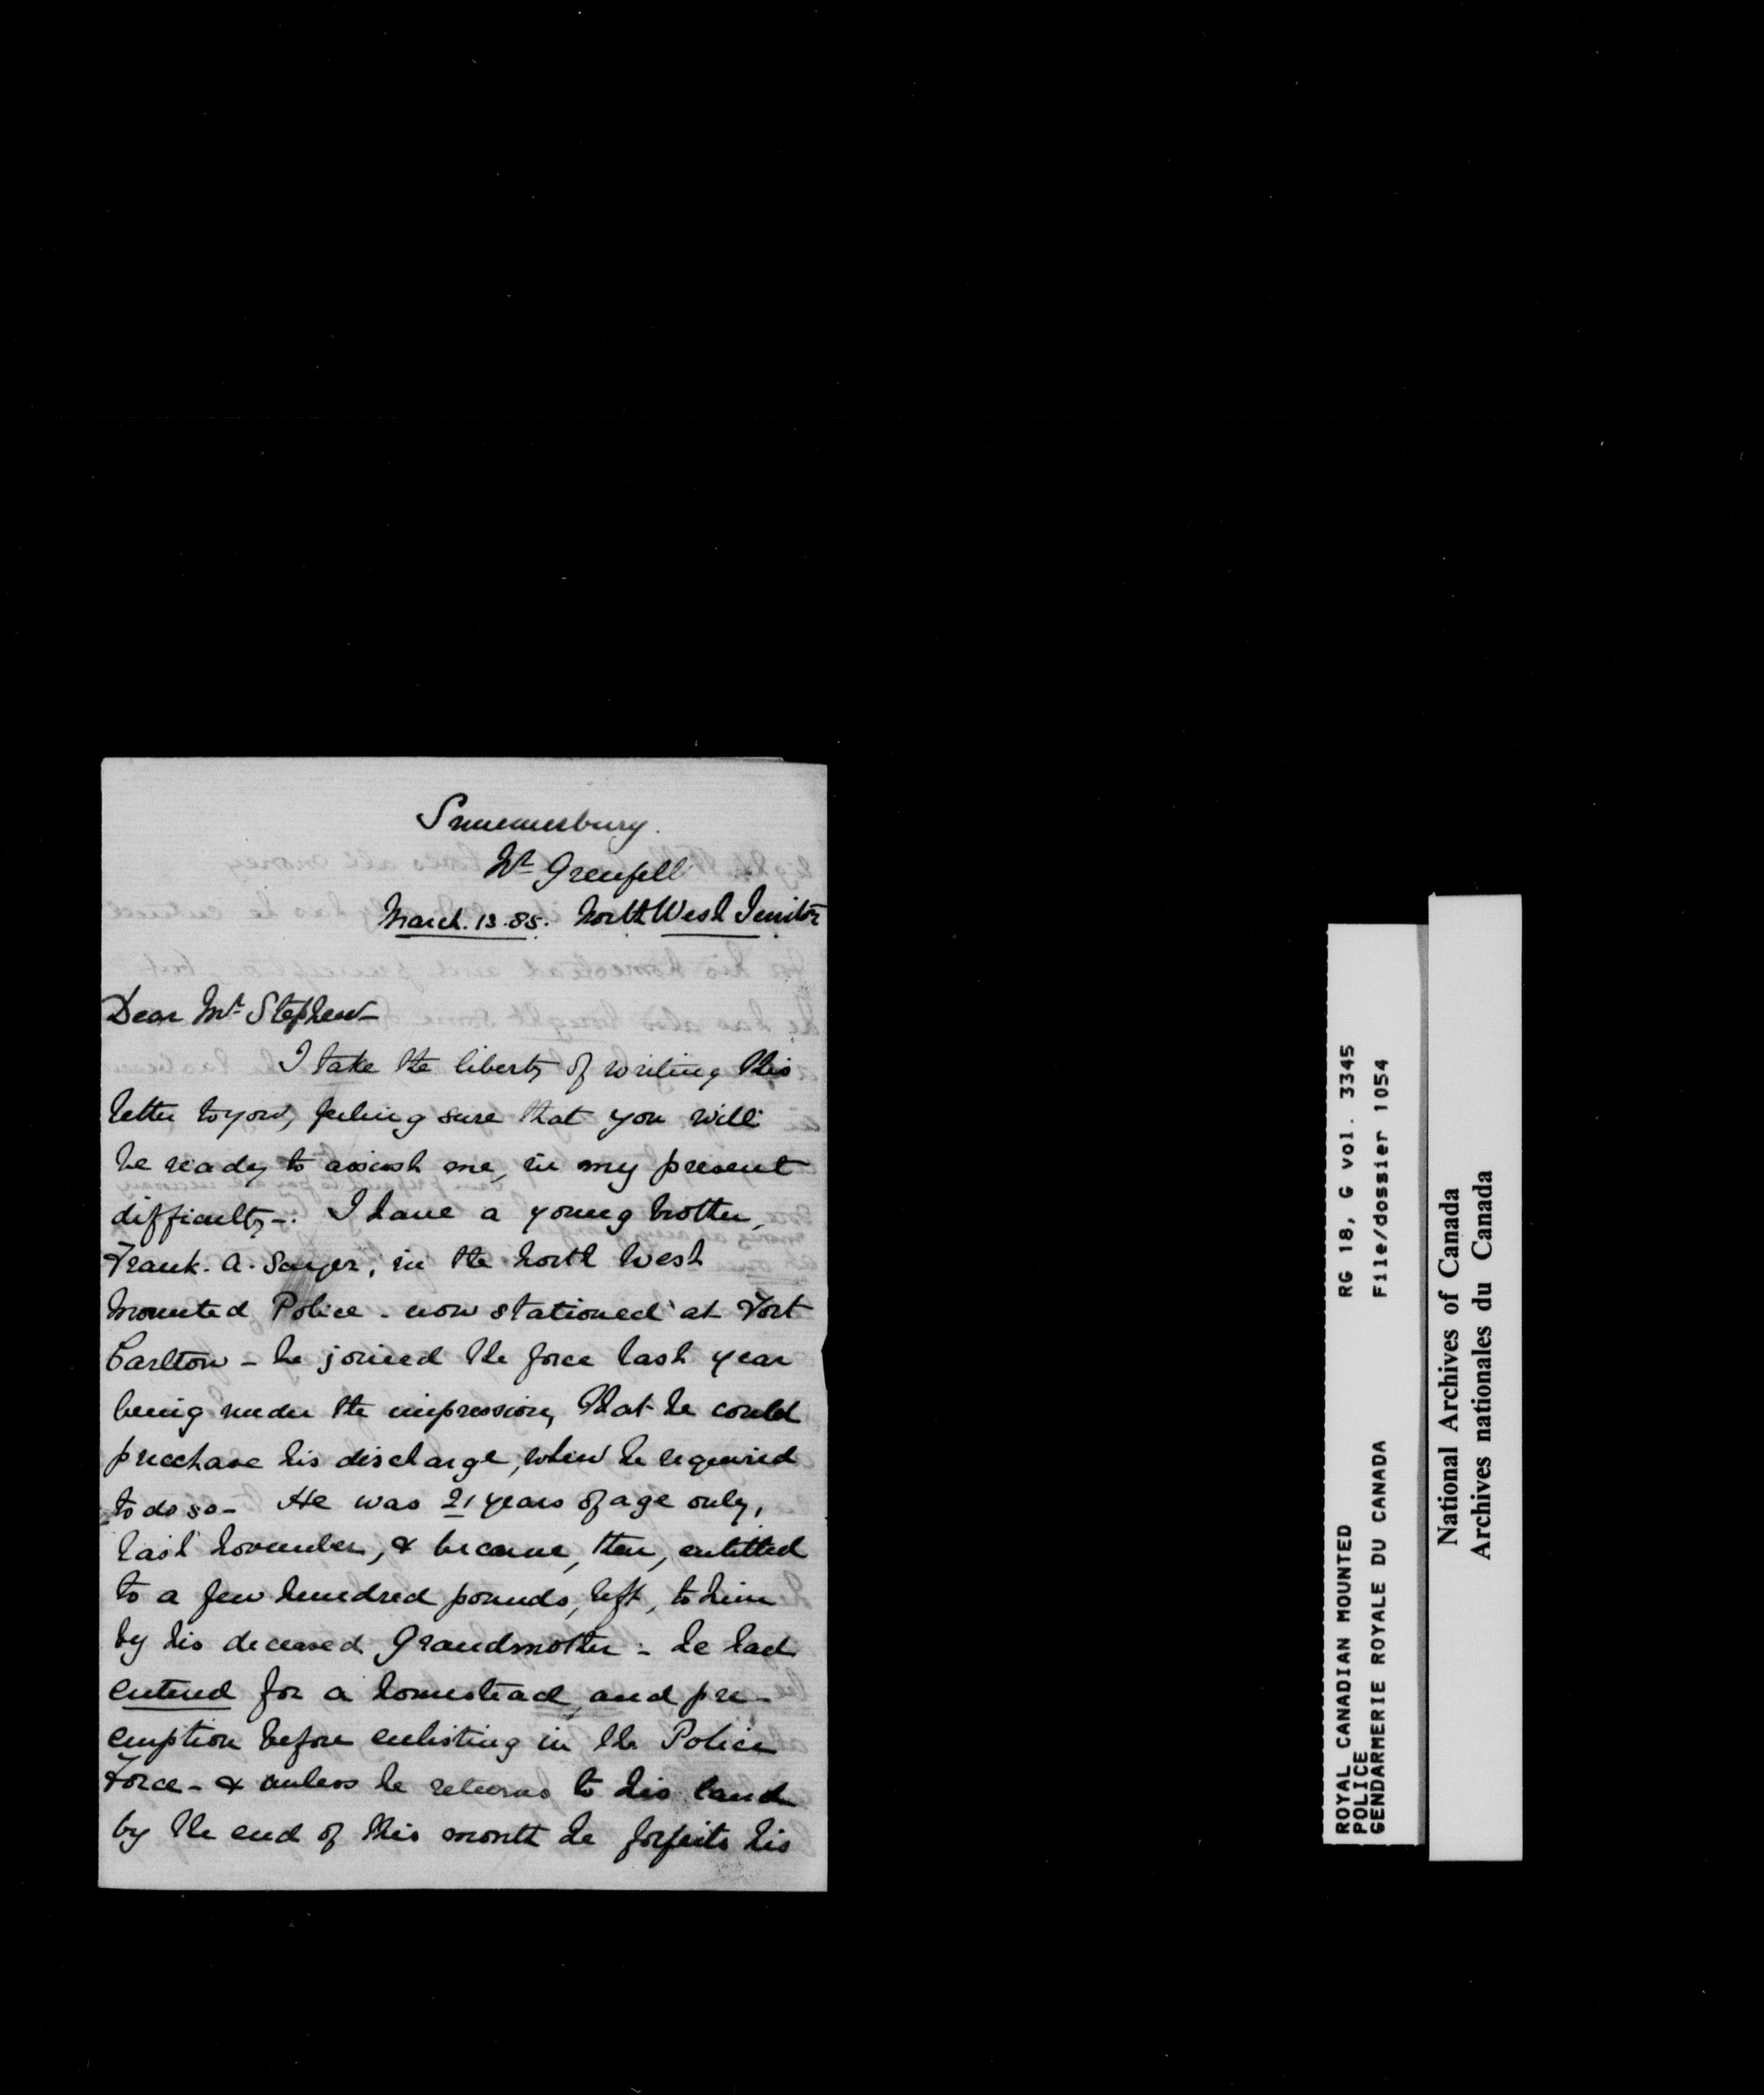 Summersbury.
Nr Grenfell
March. 13. 85. North West Territory
Dear Mr Stephen
I take the liberty of writing this
letter to you, feeling sure that you will
be ready to assist me, in my present
difficulty-. I have a young brother,
Frank. A. in the North West
Mounted Police - now stationed at Fort
Carlton - he joined the force last year
being under the impression, that he could
purchase his discharge, when he required
to do so - He was 21 years of age only,
last November, & became, then, entitled
to a few hundred pounds, left, to him
by his deceased Grandmother - he had
entered for a homestead, and pre-
emption before enlisting in the Police
Force - & unless he returns to his land
by the end of this month he forfeits his
ROYAL CANADIAN MOUNTED RG 18, G vol. 3345
POLICE
GENDARMERIE ROYALE DU CANADA File/dossier 1054
National Archives of Canada
Archives nationales du Canada